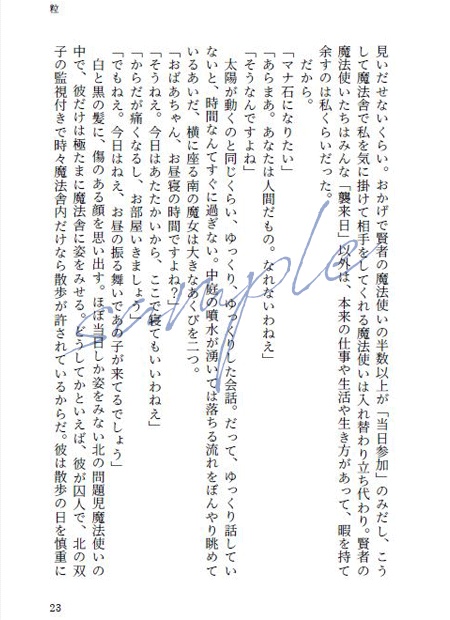 粒
見いだせないくらい。おかげで賢者の魔法使いの半数以上が「当日参加」のみだし、こう
して魔法舎で私を気に掛けて相手をしてくれる魔法使いは入れ替わり立ち代わり。賢者の
魔法使いたちはみんな「襲来日」以外は、本来の仕事や生活や生き方があって、暇を持て
余すのは私くらいだった。
だから。
「マナ石になりたい」
「あらまあ。あなたは人間だもの。なれないわねえ」
「そうなんですよね」
太陽が動くのと同じくらい、ゆっくり、ゆっくりした会話。だって、ゆっくり話してい
ないと、時間なんてすぐに過ぎない。中庭の噴水が湧いては落ちる流れをぼんやり眺めて
いるあいだ、横に座る南の魔女は大きなあくびを二つ。
「おばあちゃん、お昼寝の時間ですよね？」
「そうねえ。今日はあたたかいから、ここで寝てもいいわねえ」
「からだが痛くなるし、お部屋いきましょう」
「でもねえ。今日はねえ、お昼の振る舞いであの子が来てるでしょう」
白と黒の髪に、傷のある顔を思い出す。ほぼ当日しか姿をみない北の問題児魔法使いの
中で、彼だけは極たまに魔法舎に姿をみせる。どうしてかといえば、彼が囚人で、北の双
子の監視付きで時々魔法舎内だけなら散歩が許されているからだ。彼は散歩の日を慎重に
sample
23